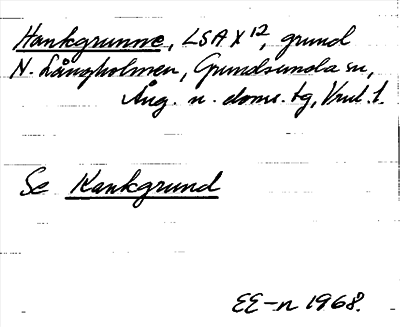 Hankgrunne, LSA X 12, grund
N. Långholmen, Grundsunda sn,
Ång. n. doms. tg, Vnul. t.
Se Kankgrund
EE-n 1968.